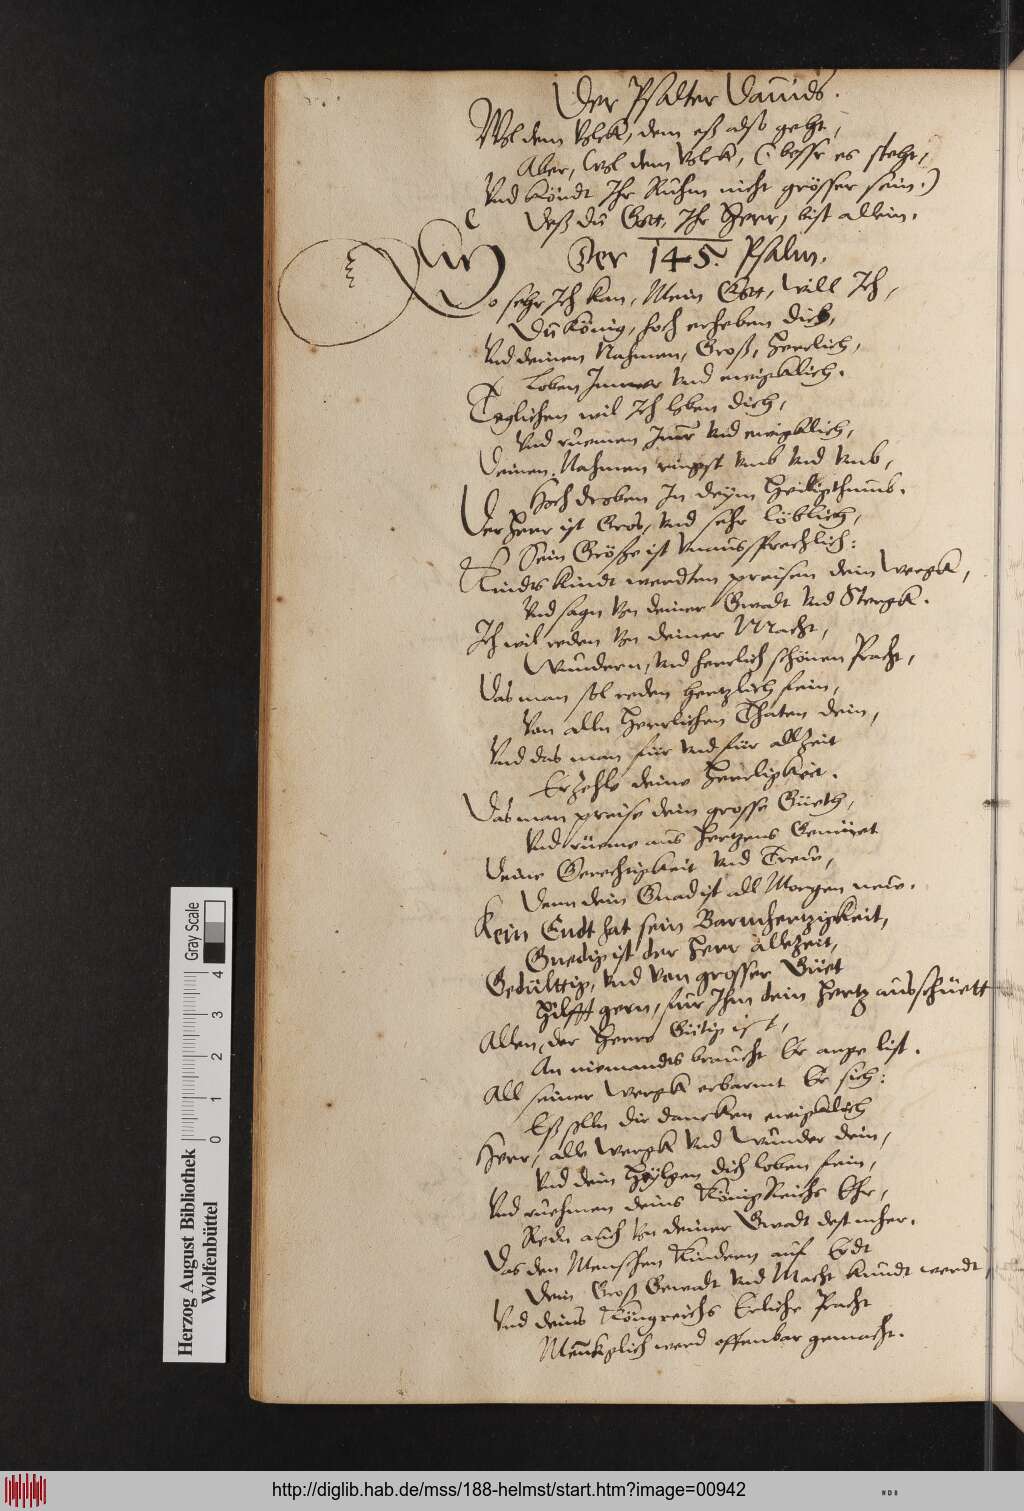 Der Psalter Dauids.
Wol dem Volck, dem eß also geht,
Aber, Wol dem Volck, (besser es steht,
Vnd köndt Ihr Ruhm nicht grösser sein.)
Deß du Gott, Ihr Herr, bist allein.
Der 145. Psalm.
So sehr Ich kan, Mein Gott, will Ich,
Du König, hoch erheben dich,
Vnd deinen Nahmen, Groß, Herrlich,
Loben Immer Vnd ewigklich.
Teglichen wil Ich loben dich,
Vnd ruemen Imer Vnd ewigklich,
Deinen Nahmen ringst Vmb Vnd Vmb,
Hoch droben In deym Heiligthumb.
Der Herr ist Gros, Vnd sehr löblich,
Sein Grösze ist Vnaussprechlich:
Kindts Kindt werdten preisen dein Wergk,
Vnd sagn Von deiner Gwadt Vnd Stergk.
Ich wil reden Von deiner Macht,
Wundern, Vnd herrlich schönen Pracht,
Das man sol reden hertzlich fein,
Von alln Herrlichen Thaten dein,
Vnd das man für Vnd für allzeit
Erzehle deine Herrligkeit.
Das man preise dein grosse Güeth,
Vnd rüeme aus Hertzens Gemüet
Deine Gerechtigkeit Vnd Trew,
Denn dein Gnad ist all Morgen new.
Kein Endt hat sein Barmhertzigkeit,
Gnedig ist der Herr allezeit,
Gedülttig, Vnd Von grosser Güet
Hilfft gern, für Ihm dein Hertz ausschüett
Allen, der Herre Gütig ist,
An niemandts braucht Er arge list.
All seiner Wergk erbarmt Er sich:
Eß solln dir dancken ewigklich
Herr, alle Wergk Vnd Wunder dein,
Vnd dein Heylgen dich loben fein,
Vnd ruehmen deins KönigReichs Ehr,
Redn auch Von deiner Gwadt dest mher.
Das den Menschen Kindern auf Erdt
Dein Groß Gewadt Vnd Macht kundt werdt,
Vnd deins Köngreichs Erliche Pracht
Menigklich werd offenbar gemacht.
Herzog August Bibliothek
Wolfenbüttel
0 1 2 3 4
Gray Scale
http://diglib.hab.de/mss/188-helmst/start.htm?image=00942